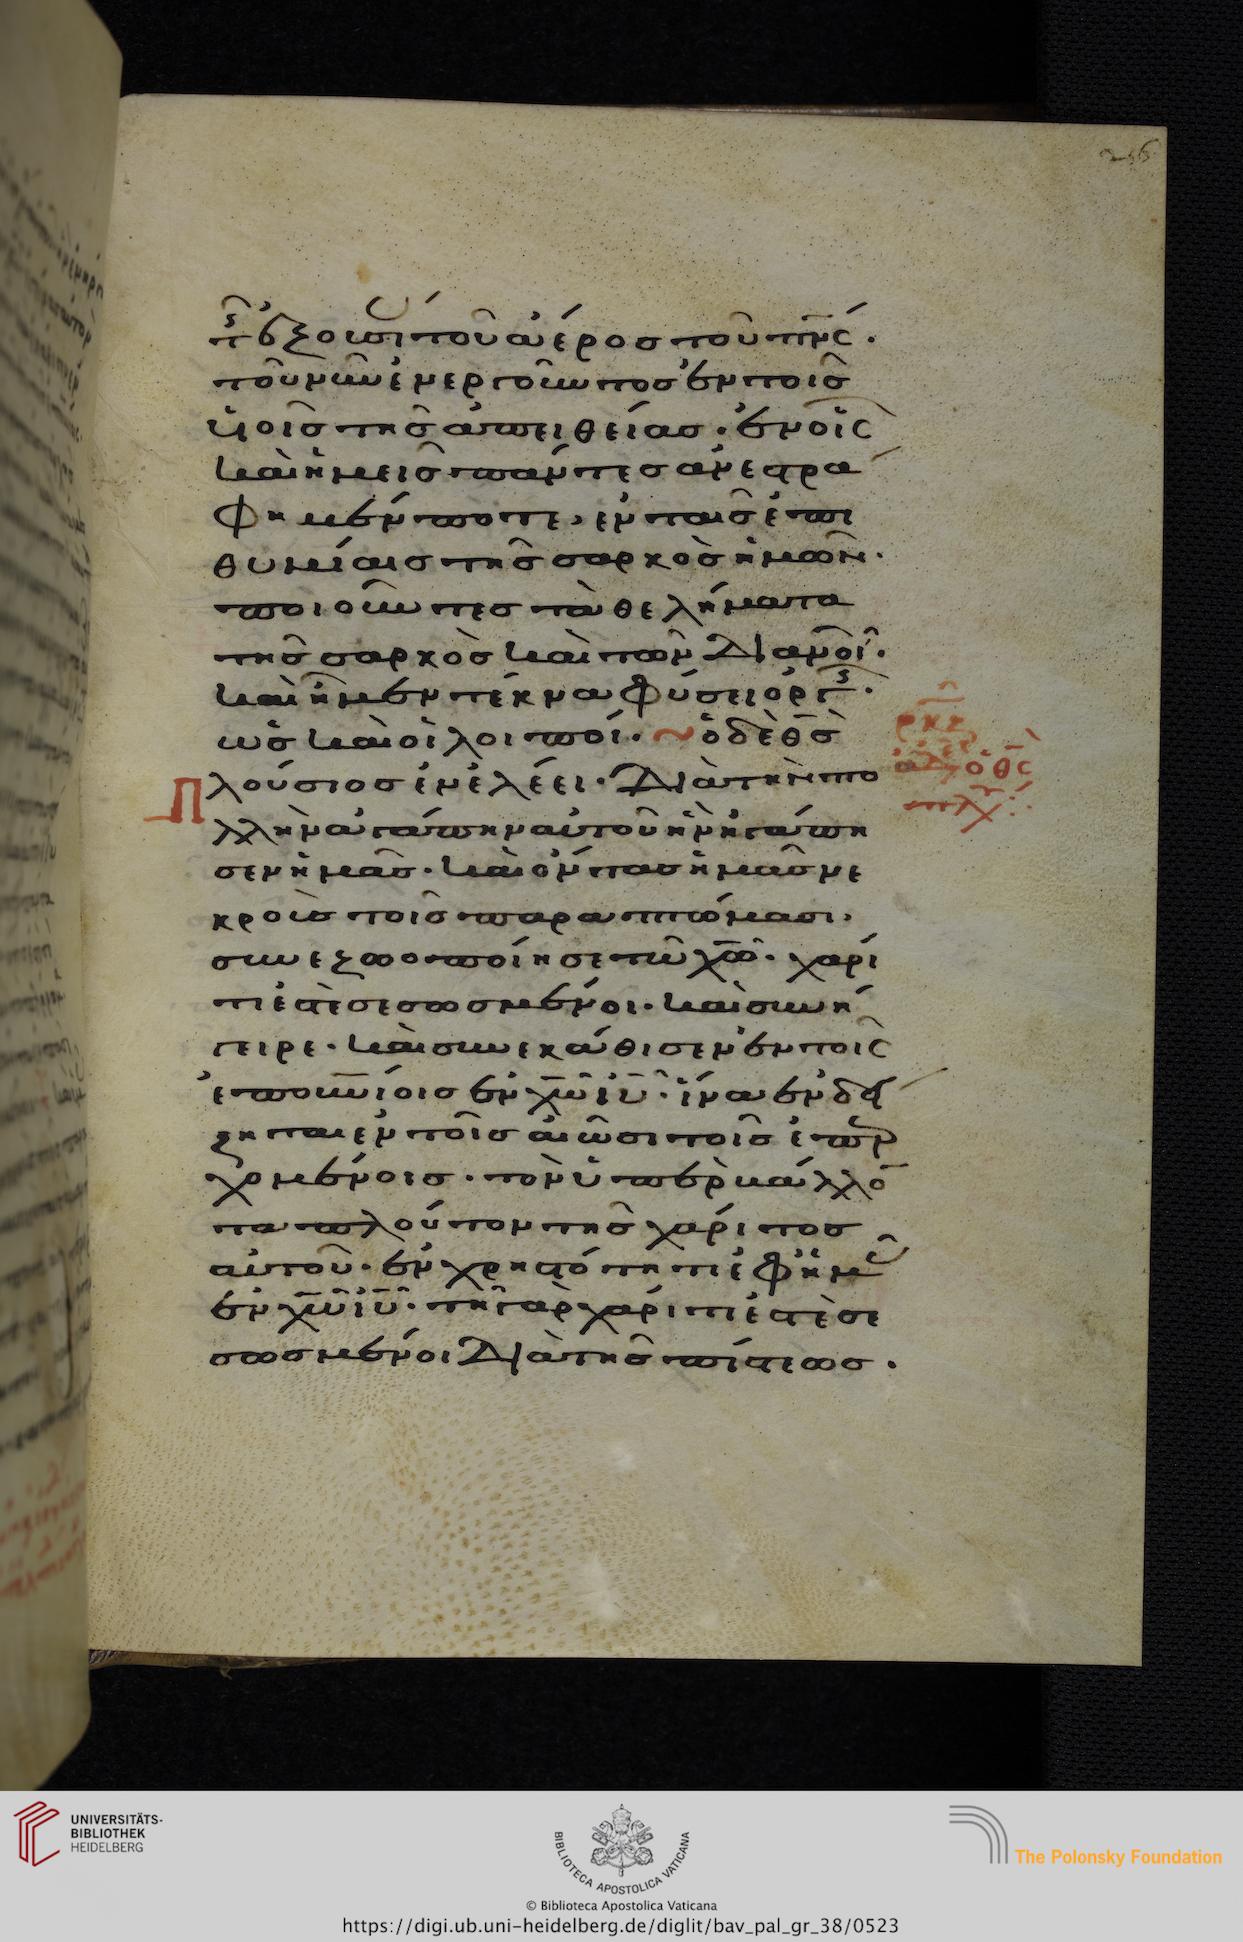 256
τῆς ἐξουσίας τοῦ ἀέρος τοῦ πν̅ς·
τοῦ νῦν ἐνεργοῦντος ἐν τοῖς
υἱοῖς τῆς ἀπειθείας· ἐν οἷς
καὶ ἡμεῖς πάντες ἀνεστρά
φημέν ποτε, ἐν ταῖς ἐπι
θυμίαις τῆς σαρκὸς ἡμῶν·
ποιοῦντες τὰ θελήματα
τῆς σαρκὸς καὶ τῶν διανοι·
καὶ ἦμεν τέκνα φύσει ὀργῆς·
ὡς καὶ οἱ λοιποί· ὁ δὲ θ̅ς̅
Πλούσιος ἐν ἐλέει· διὰ τὴν πο
λλὴν ἀγάπην αὐτοῦ ἣν ἠγάπη
σεν ἡμᾶς· καὶ ὄντας ἡμᾶς νε
κροὺς τοῖς παραπτώμασι,
συνεζωοποίησε τῶ χ̅ω̅· χάρι
τί ἐστε σεσωσμένοι· καὶ συνή
γειρε· καὶ συνεκάθισεν ἐν τοῖς
ἐπουνίοις ἐν χ̅ω̅ ι̅υ̅· ἵνα ἐνδεί
ξηται ἐν τοῖς αἰῶσι τοῖς ἐπερ
χομένοις· τὸν ὑπερβάλλον
τα πλοῦτον τῆς χάριτος
αὐτοῦ· ἐν χρηστότητι ἐφ' ἡμᾶς
ἐν χ̅ω̅ ι̅υ̅· τῆ γὰρ χάριτί ἐστε σε
σωσμένοι διὰ τῆς πίστεως·
ὁ θ̅ς̅
UNIVERSITÄTS-
BIBLIOTHEK
HEIDELBERG
BIBLIOTECA APOSTOLICA VATICANA
The Polonsky Foundation
© Biblioteca Apostolica Vaticana
https://digi.ub.uni-heidelberg.de/diglit/bav_pal_gr_38/0523